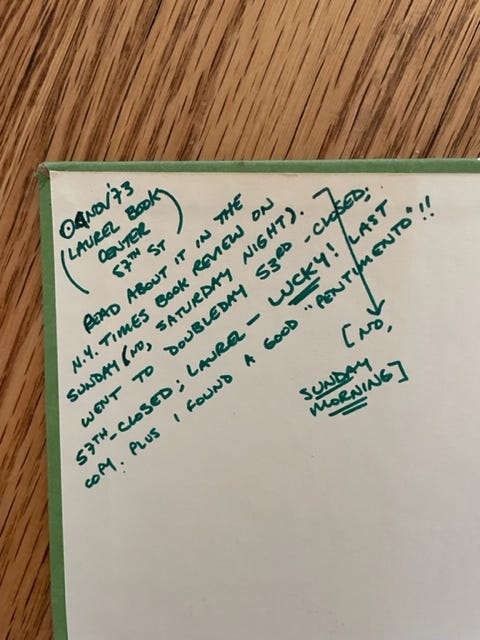 04NOV'73
(LAUREL BOOK
CENTER
57TH ST)
READ ABOUT IT IN THE
N.Y. TIMES BOOK REVIEW ON
SUNDAY (NO, SATURDAY NIGHT).
WENT TO DOUBLEDAY 53RD - CLOSED;
57TH - CLOSED; LAUREL - LUCKY! LAST
COPY. PLUS I FOUND A GOOD "PENTIMENTO"!!
[NO,
SUNDAY
MORNING]